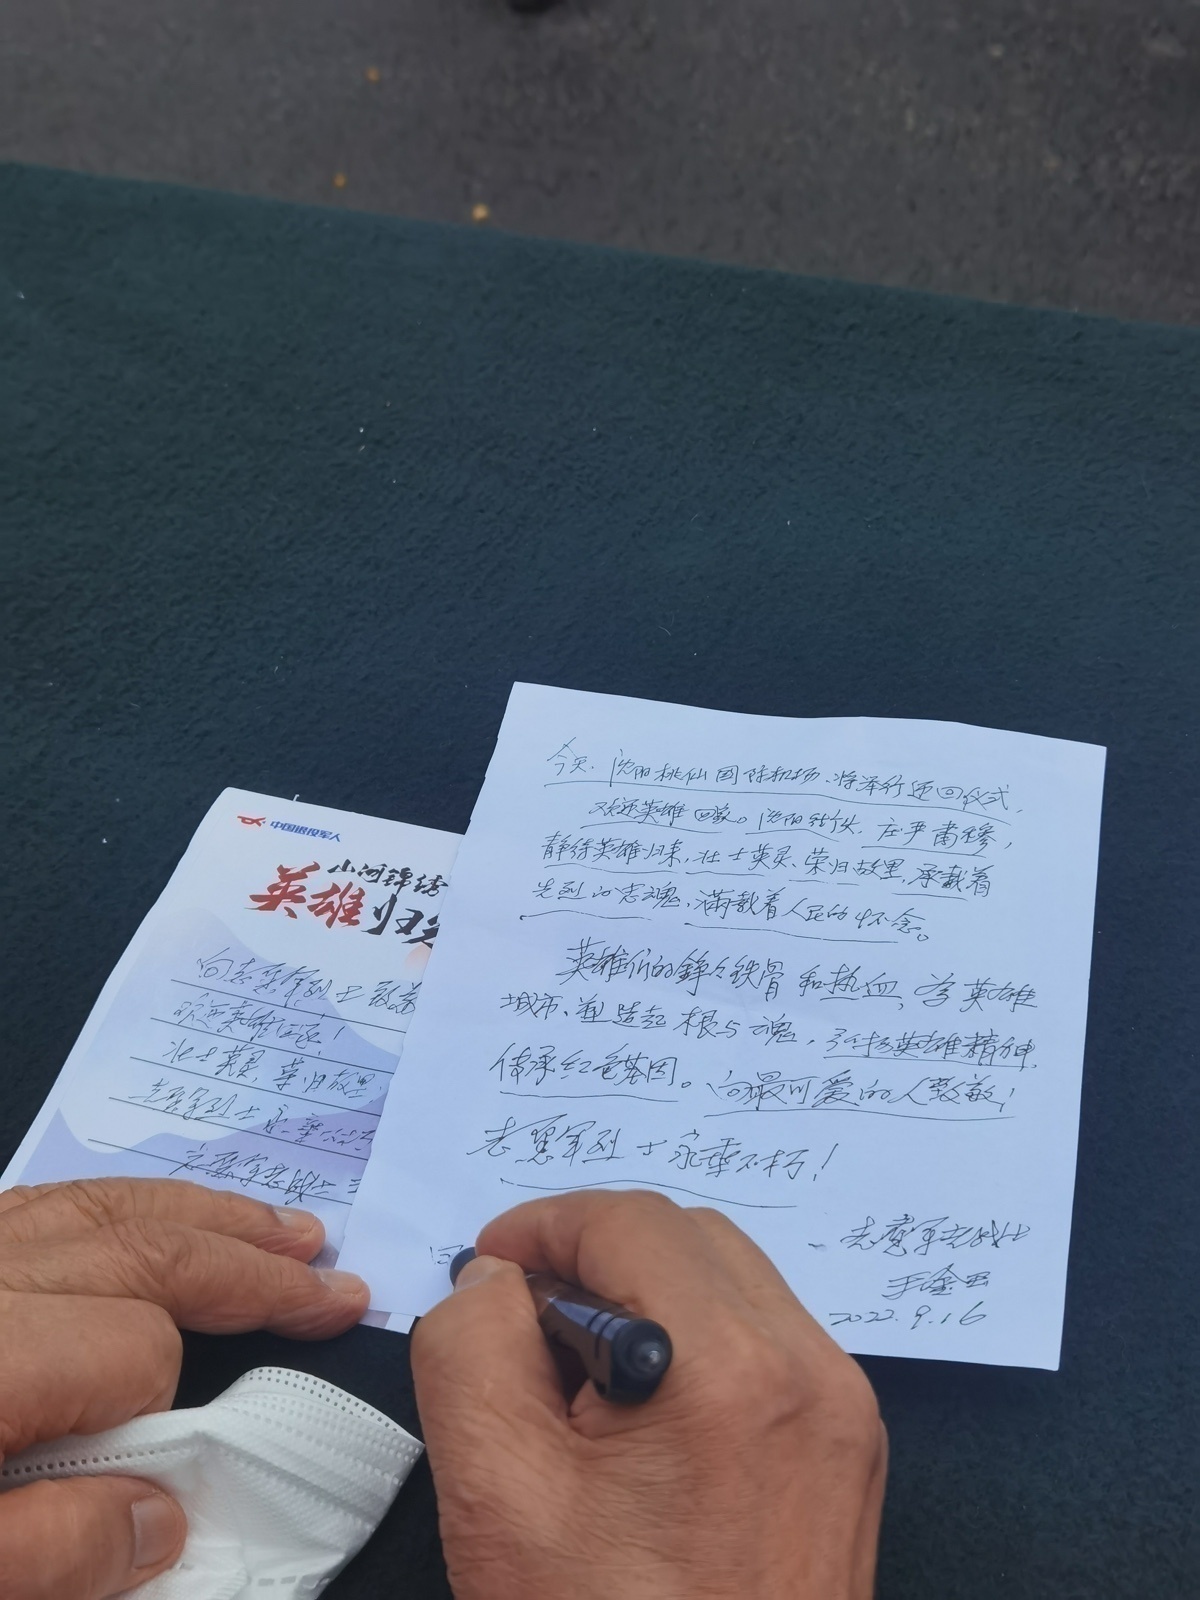 中国退役军人
山河锦绣
英雄归
向志愿军烈士致敬
欢迎英雄回家！
壮士英灵，荣归故里
志愿军烈士永垂
今天、沈阳桃仙国际机场、将举行迎回仪式，
欢迎英雄回家。沈阳街头，庄严肃穆，
静待英雄归来，壮士英灵、荣归故里，承载着
先烈的忠魂，满载着人民的怀念。
英雄们的铮々铁骨和热血，为英雄
城市、塑造起根与魂，弘扬英雄精神，
传承红色基因。向最可爱的人致敬！
志愿军烈士永垂不朽！
志愿军老战士
2022.9.16